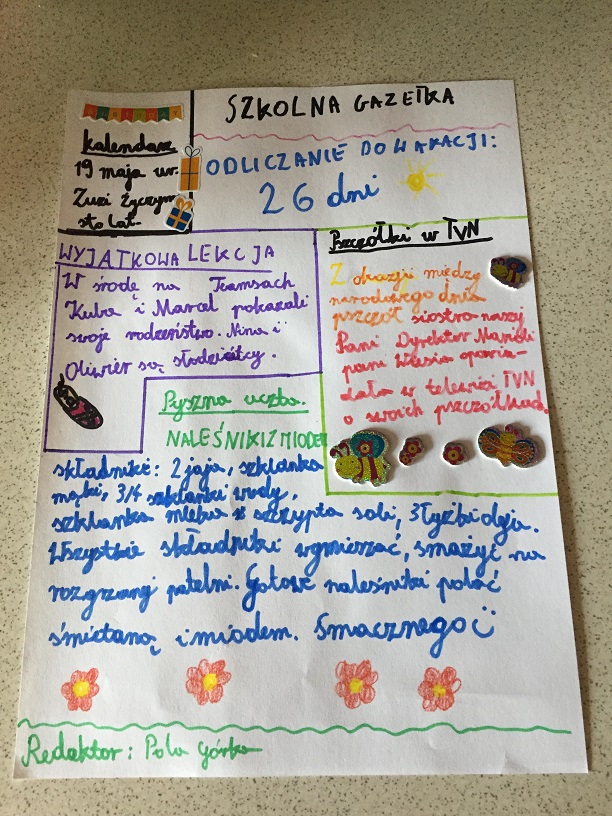 SZKOLNA GAZETKA
kalendarz
19 maja ur.
Zuzi życzym
sto lat
ODLICZANIE DO WAKACJI:
26 dni
WYJĄTKOWA LEKCJA
W środę na Teamsach
Kuba i Marcel pokazali
swoje rodzeństwo. Nina i
Oliwier są słodziaśtcy.
Pszczółki w TVN
Z okazji między
narodowego dnia
pszczół siostra naszej
Pani Dyrektor Marioli
pani Wiesia opowia-
dała w telewizi TVN
o swoich pszczółkach.
Pyszna uczta.
NALEŚNIKI Z MIODEM
składniki: 2 jaja, szklanka
mąki, 3/4 szklanki wody,
szklanka mleka szczypta soli, 3 łyżki oleju.
Wszystkie składniki wymieszać, smażyć na
rozgrzanej patelni. Gotowe naleśniki polać
śmietaną i miodem. Smacznego
Redaktor: Pola Górka